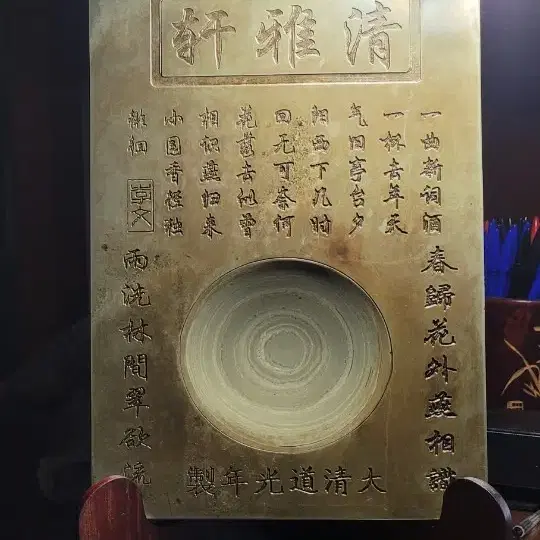 清雅轩
春歸花外燕相識
一曲新词酒
一杯去年天
气旧亭台夕
阳西下几时
回无可奈何
花落去似曾
相识燕归来
小园香径独
徘徊
雨洗林間翠欲流
大清道光年製